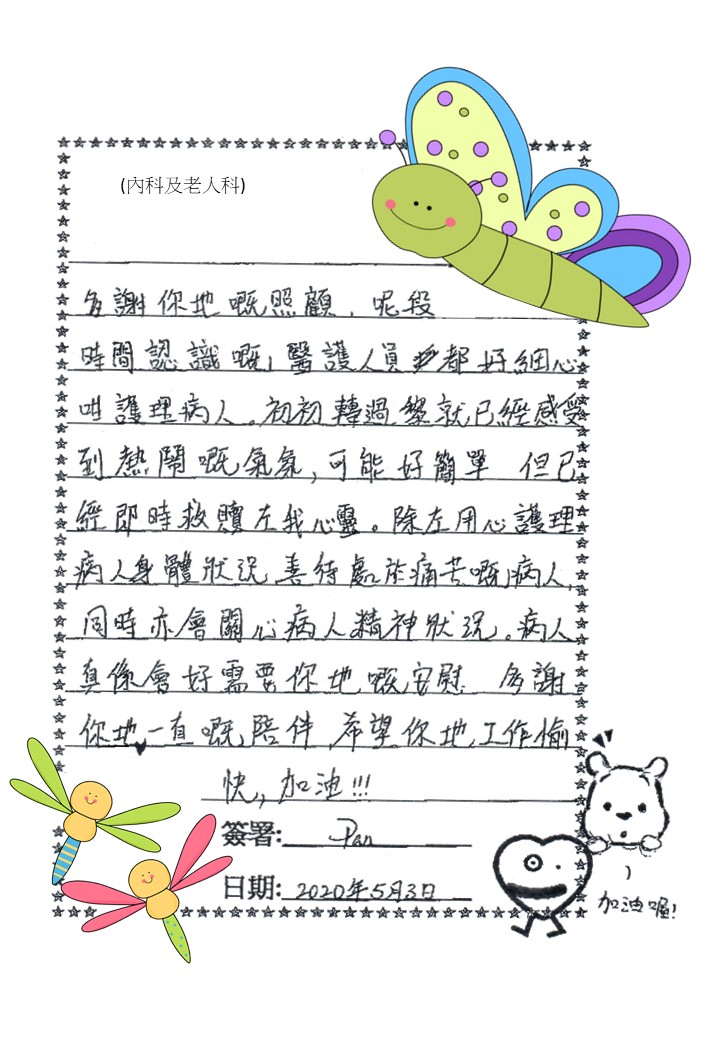 (內科及老人科)
多謝你地嘅照顧，呢段
時間認識嘅醫護人員都好細心
咁護理病人。初初轉過黎就已經感受
到熱鬧嘅氣氛，可能好簡單 但已
經即時救贖左我心靈。除左用心護理
病人身體狀況 善待處於痛苦嘅病人，
同時亦會關心病人精神狀況。病人
真係會好需要你地嘅安慰 多謝
你地一直嘅陪伴 希望你地工作愉
快，加油!!!
簽署: Pan
日期: 2020年5月3日
加油喔!